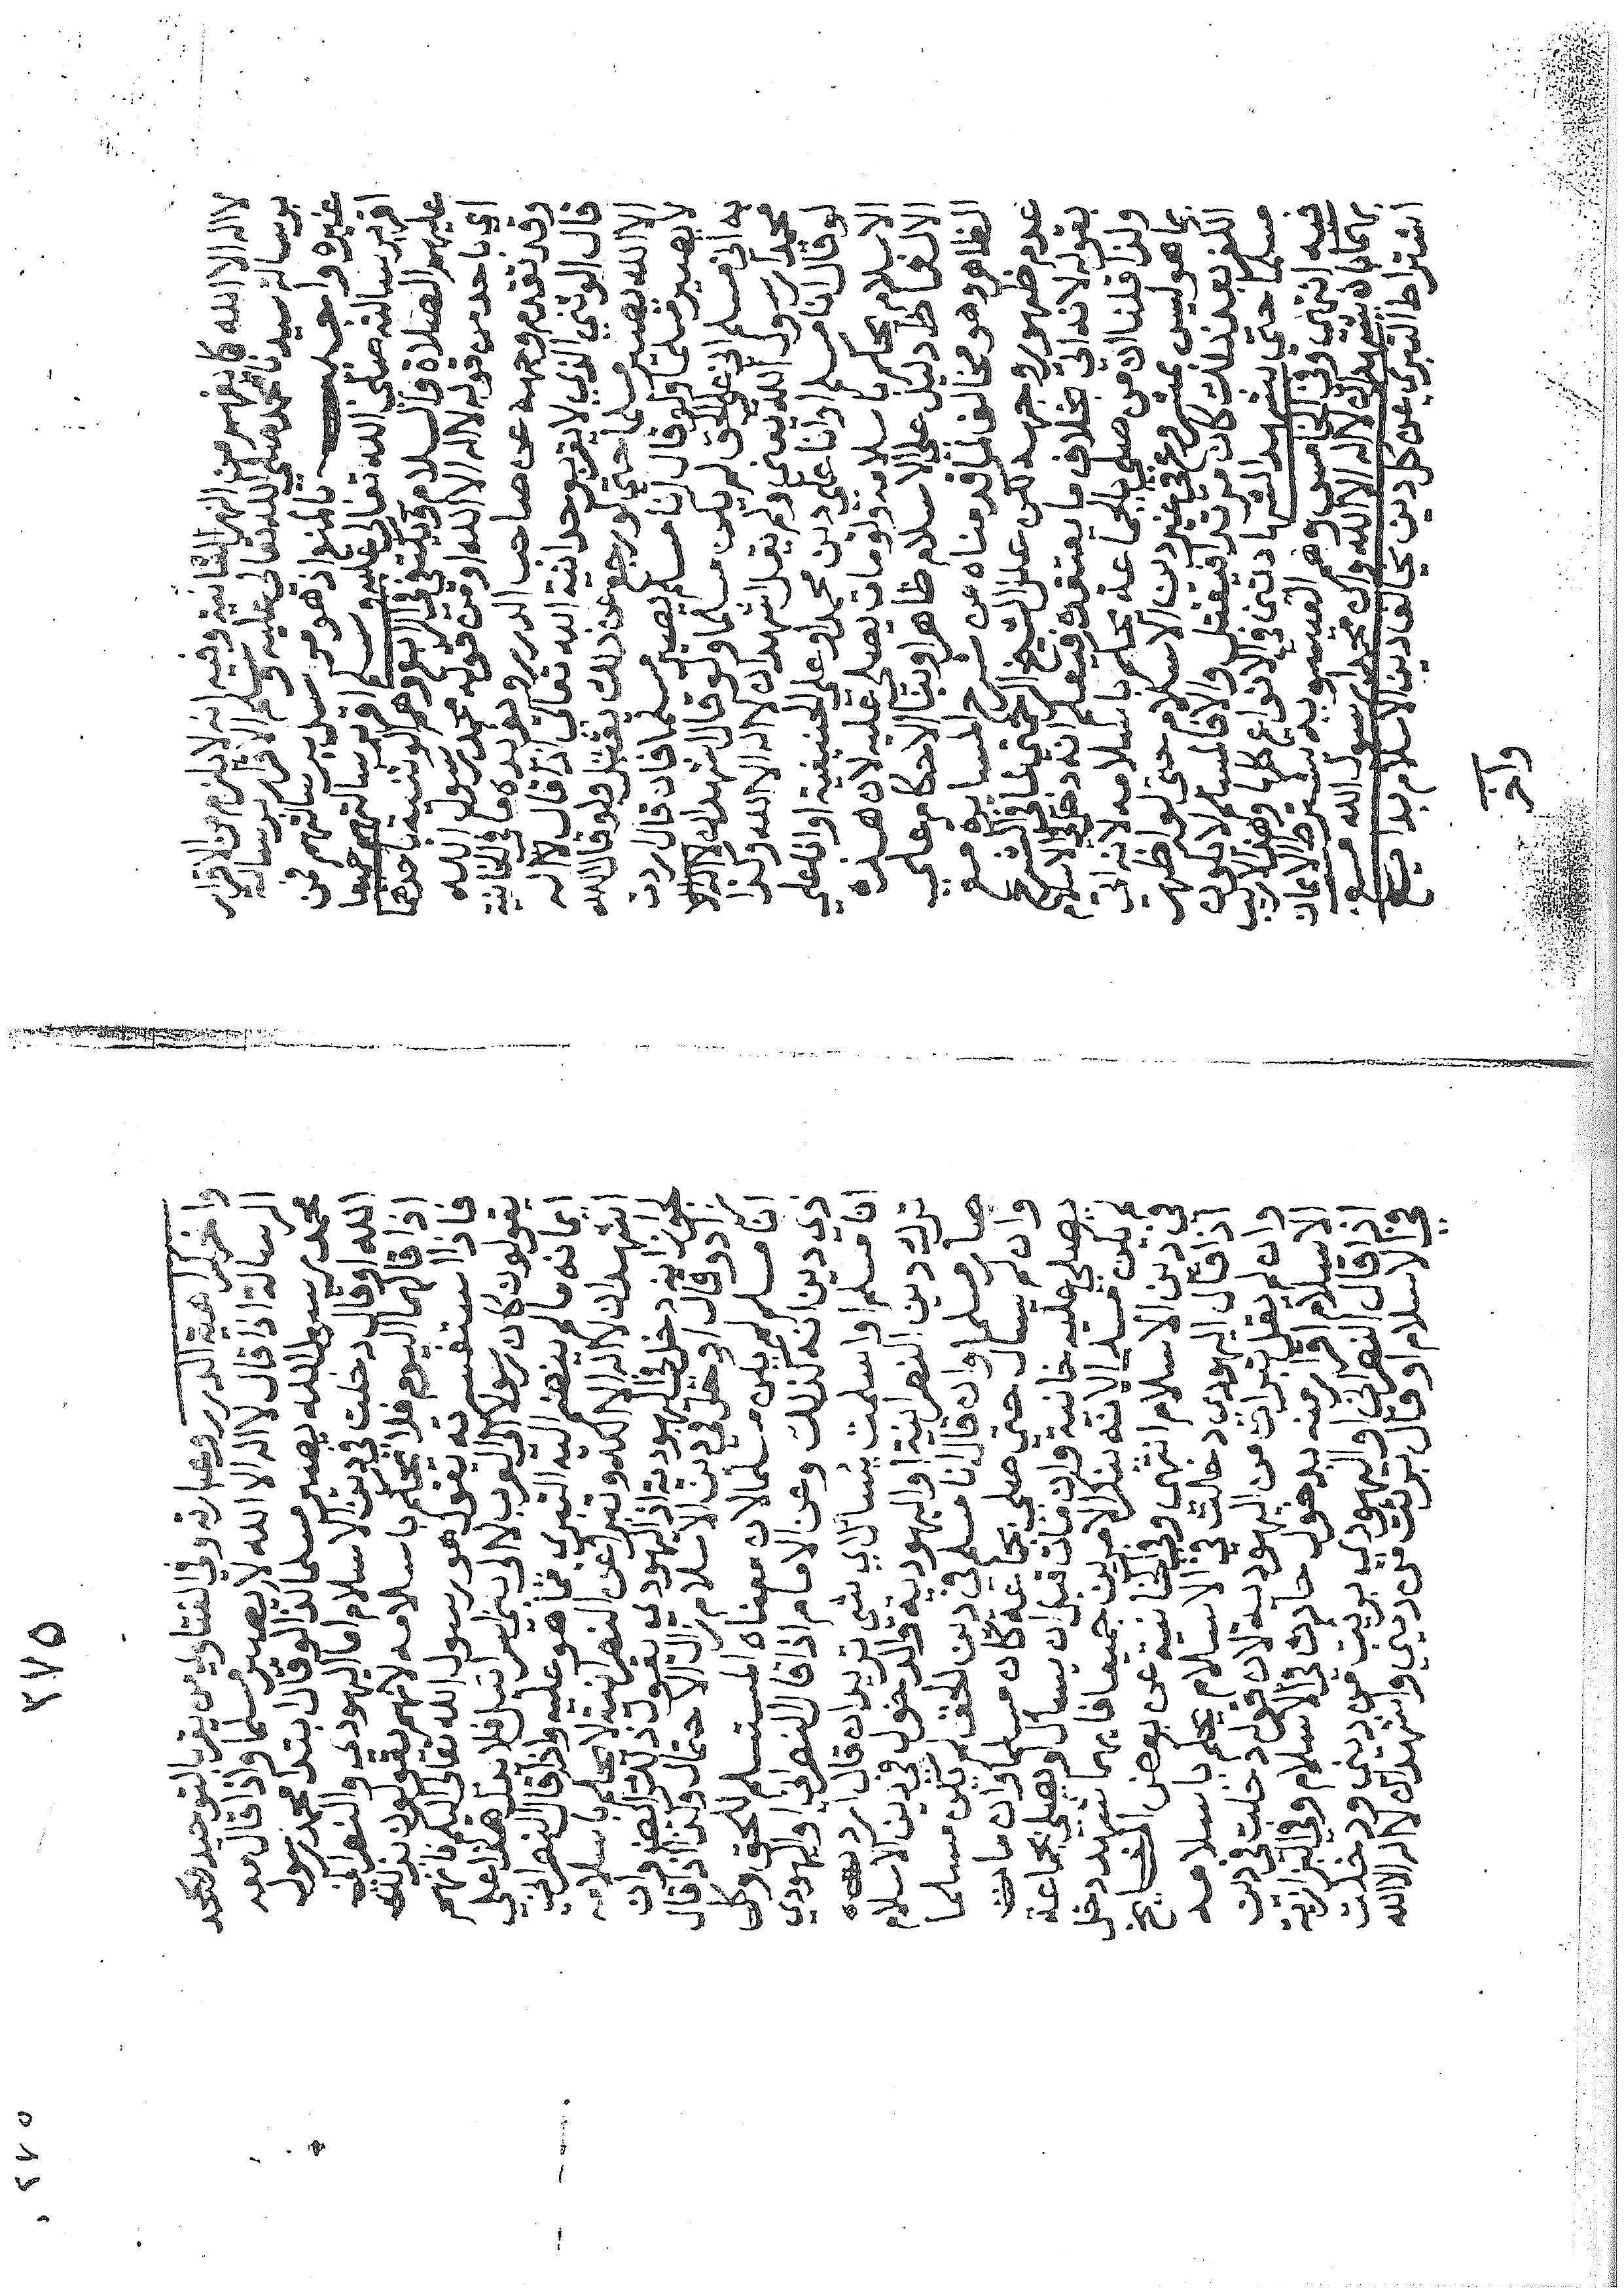 لا اله الا الله كما يفهم من النهر الثانية وفيه انه لا يلزم من الاقرار
برسالة سيدنا محمد صلى الله تعالى عليه وسلم الاقرار برسالة
غيره واجيب بالمنع اذ هو مرسل برسالتهم فمن
اقر برسالته صلى الله تعالى عليه وسلم اقر برسالتهم جميعا
عليهم الصلاة والسلام ويكتفى في الرابع وهو الوثنية باحدهما
اي باحد من قوله لا اله الا الله او من قوله محمد رسول الله
وقد تقدم وجهه عن صاحب الدرر ويؤيده ما في الخانية
قال الوثني الذي لا يقر بوحدانية الله تعالى اذا قال لا اله
الا الله يصير مسلما حتى لو رجع عن ذلك يقتل ولو قال الله
لا يصير مسلما ولو قال انا مسلم يصير مسلما فان قال اردت
به اني مسلم اني على الحق لم يكن مسلما ولو قال اشهد ان
محمدا رسول الله يعني ولم يقل اشهد ان لا اله الا الله وكذا
لو قال انا مسلم او انا على دين محمد او على الحنيفية او انا على
الاسلام يحكم باسلامه ولو مات يصلى عليه لان هذه
الالفاظ دليل على الاسلام ظاهرا وبنا الاحكام على
الظاهر وهو مخالف لما قدمناه عن شرح المسايره مع
عدم ظهور وجهه لكن علل الشيخ الرحمتي ما في الشرح
بقوله لانه اتى بخلاف ما يعتقده فيعلم انه دخل في الاسلام
ولذا قلنا ان من صلى بالجماعة يحكم باسلامه لانه اتى
بما هو ليس بمشروع في غير دين الاسلام حتى لو اظهر
الكفر بعد ذلك كان مرتدا فيقتل والا فالمسلم لا يكون
مسلما حتى يشهد الشهادتين في الانواع كلها وهذا لا ريب
فيه انتهى وفي الخامس وهم العيسوية يشترط الاتيان
بهما بان يشهد ان لا اله الا الله وان محمدا رسول الله مع
اشتراط التبري عن كل دين يخالف دين الاسلام بدايع
واخر
٢٧٥
واخر كراهية الدرر وعبارته وفي الفتاوى من يقر بالتوحيد ويجحد
الرسالة اذا قال لا اله الا الله لا يصير مسلما واذا قال معه
محمد رسول الله يصير مسلما وكذا لو قال ابتداء محمد رسول
الله او قال دخلت في دين الاسلام اما اليهودي والنصراني
اذا قالهما اليوم فلا يحكم باسلامه لانهم يقولون بذلك
فاذا استفسرته يقول هو رسول الله تعالى اليكم فانهم
يقولون كان رسولا الى العرب لا الى بني اسرائيل فلا يدل هذا على
ايمانه ما لم ينضم اليه التبري مما هو عليه واذا قال النصراني
اشهد ان لا اله الا الله وتبرأ عن النصرانية لا يحكم باسلامه
لجواز انه دخل في اليهودية اذ اليهودي يقول ذلك ايضا وان
زاد وقال ادخل في دين الاسلام زال الاحتمال ولذا اذا قال
انا مسلم لم يكن مسلما لان معناه المستسلم للحق وكل
ذي دين انه كذلك وعن الامام اذا قال النصراني او اليهودي
انا مسلم او اسلمت يسال اي شي تريد ان قال اردت
ترك دين النصرانية او اليهودية والدخول في دين الاسلام
صار مسلما وان قال انا مسلم في دين الحق لم يكن مسلما
وان لم يسال حتى صلى بجماعة كان مسلما وان مات
يصلى عليه خانية وان مات قبل ان يسال او يصلي بجماعة
لم يكن مسلما لانه ينكر الامرين جميعا فايهما شهد دخل
في دين الاسلام انتهى وفي الخانية عن بعض المشايخ
اذا قال اليهودي دخلت في الاسلام يحكم باسلامه
وان لم يقل تبرات من اليهودية لان قوله دخلت في دين
الاسلام اقرار منه بدخول حادث في الاسلام وفي البزازية
اذا قال النصراني او اليهودي بريت من ديني ودخلت
في الاسلام او قال برئت من ديني واشهد ان لا اله الا الله
٢٧٥